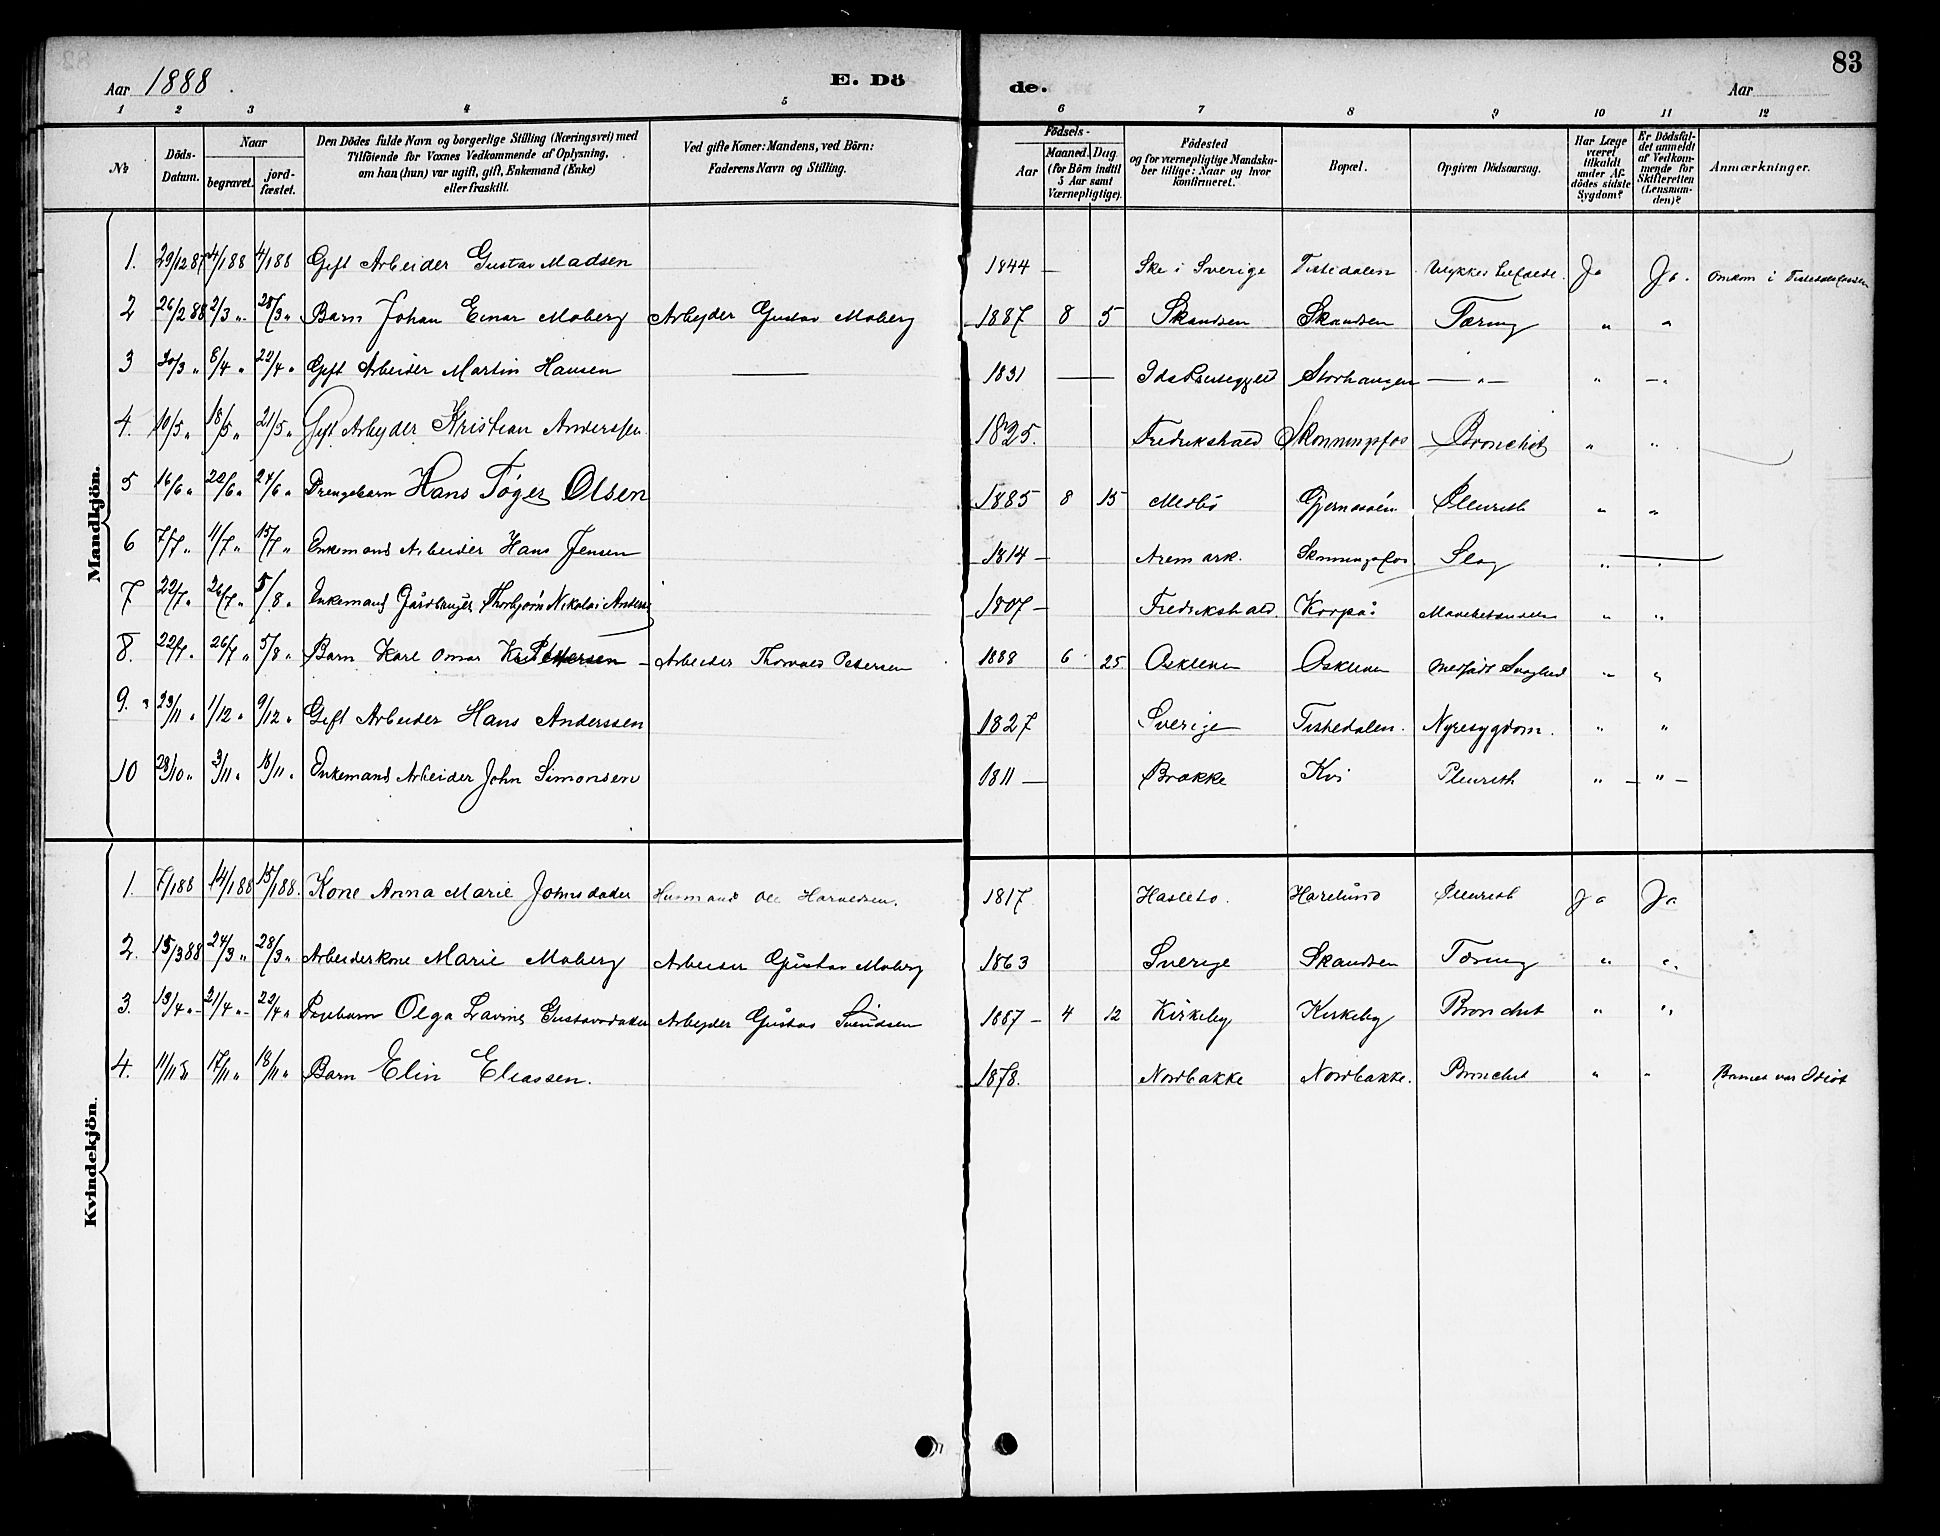 83
Aar 1888.
E. Dö de.
Aar
1 2 3 4 5 6 7 8 9 10 11 12
No
Döds-Datum.
Naar
begravet.
jord-fæstet.
Den Dödes fulde Navn og borgerlige Stilling (Næringsvei) med
Tilföiende for Voxnes Vedkommende af Oplysning,
om han (hun) var ugift, gift, Enkemand (Enke)
eller fraskilt.
Ved gifte Koner: Mandens, ved Börn:
Faderens Navn og Stilling.
Födsels-
Aar
Maaned. Dag
(for Börn indtil
5 Aar samt
Værnepligtige).
Födested
og for værnepligtige Mandska-
ber tillige: Naar og hvor
konfirmeret.
Bopæl.
Opgiven Dödsaarsag.
Har Læge
været
tilkaldt
under Af-
dödes sidste
Sygdom?
Er Dödsfal-
det anmeldt
af Vedkom-
mende for
Skifteretten
(Lensman-
den)?
Anmærkninger.
Mandkjön.
1. 29/12 87 4/1 88 4/1 88 Gift Arbeider Gustav Madsen 1844 — Ske i Sverige Tistedalen Ja Ja. Omkom i
2 26/2 88 2/3 " 28/3 " Barn Johan Einar Moberg Arbejder Gustav Moberg 1887 8 5 Skandsen Skandsen Tæring " "
3 30/3 " 8/4 " 22/4 " Gift Arbeider Martin Hansen — 1831 — Ids Præstegjeld Storhaugen — " — " — "
4. 10/5 " 18/5 " 21/5 " Gift Arbejder Kristian Anderssen 1825. Fredrikshald Skonningsfos Bronchit " "
5 16/6 " 22/6 " 24/6 " Drengebarn Hans Tøger Olsen 1885 8 15 Medbö Pleurith " "
6 7/7 " 11/7 " 15/7 " Enkemand Arbeider Hans Jensen 1814 — Aremark. Skonningsfos Slag " "
7 22/7 " 26/7 " 5/8 " Enkemand Gårdbruger Thorbjørn Nikolai Anders 1807 — Fredrikshald. Korpås " "
8. 22/7 " 26/7 " 5/8 " Barn Karl Omar Pettersen — Arbeider Thorvald Petersen 1888 6 25 Askleven Askleven Medfødt Svaghed " "
9. 23/11 " 1/12 " 9/12 " Gift Arbeider Hans Anderssen 1827 Sverige Tistedalen. Nyresygdom. " "
10 29/10 " 3/11 " 18/11 " Enkemand Arbeider John Simonsen 1811 — Brække Kvi Pleurith " — " —
Kvindekjön.
1. 7/1 88 14/1 88 15/1 88. Kone Anna Marie Johnsdatter Husmand Ole Haraldsen. 1817 Haslebo. Harelund Pleurith Ja Ja
2. 15/3 88 24/3 " 28/3 " Arbeiderkone Marie Moberg Arbeider Gustav Moberg 1863 Sverige Skandsen Tæring " "
3. 13/4 " 21/4 " 22/4 " Pigebarn Olga Lavine Gustavsdatter Arbejder Gustav Svendsen 1887 — 4 12 Kirkeby Kirkeby Bronchit " "
4. 11/11 88 17/11 " 18/11 " Barn Elin Eliassen. 1878. Nordbakke Nordbakke. Bronchit " " Barnet var Idiot